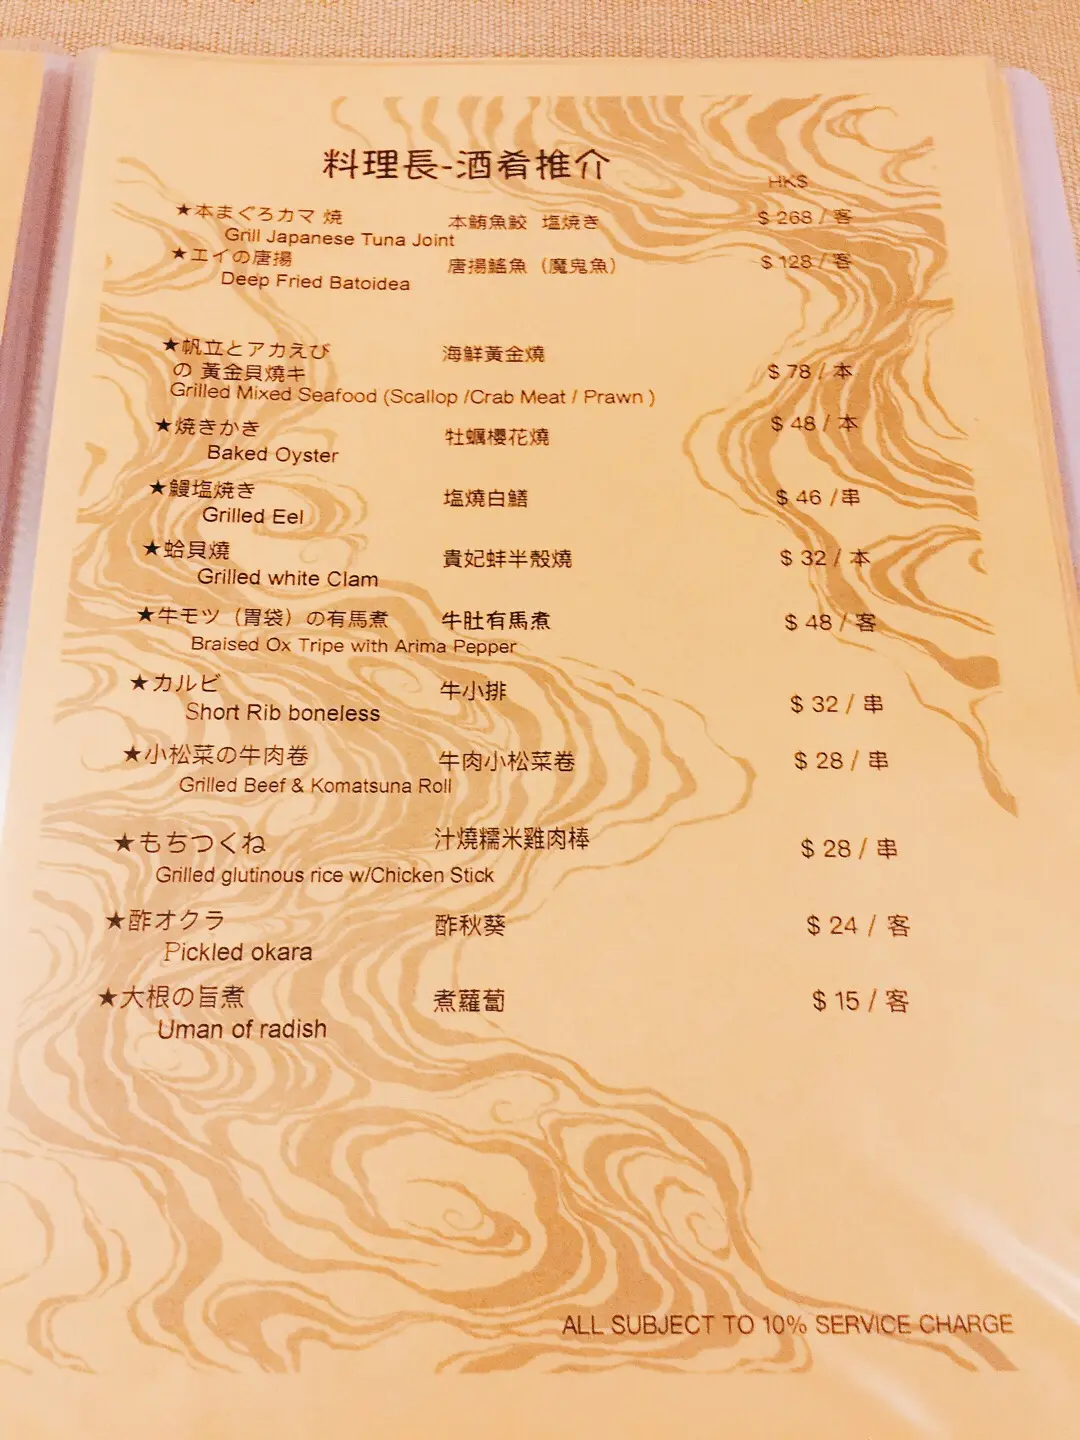 料理長-酒肴推介
HK$
★本まぐろカマ 焼 本鮪魚鮫 塩焼き $ 268 / 客
Grill Japanese Tuna Joint
★エイの唐揚 唐揚鰩魚（魔鬼魚） $ 128 / 客
Deep Fried Batoidea
★帆立とアカえび 海鮮黃金燒
の 黃金貝焼キ $ 78 / 本
Grilled Mixed Seafood (Scallop /Crab Meat / Prawn )
★焼きかき 牡蠣櫻花燒 $ 48 / 本
Baked Oyster
★鰻塩焼き 塩燒白鱔 $ 46 / 串
Grilled Eel
★蛤貝燒 貴妃蚌半殼燒 $ 32 / 本
Grilled white Clam
★牛モツ（胃袋）の有馬煮 牛肚有馬煮 $ 48 / 客
Braised Ox Tripe with Arima Pepper
★カルビ 牛小排 $ 32 / 串
Short Rib boneless
★小松菜の牛肉卷 牛肉小松菜卷 $ 28 / 串
Grilled Beef & Komatsuna Roll
★もちつくね 汁燒糯米雞肉棒 $ 28 / 串
Grilled glutinous rice w/Chicken Stick
★酢オクラ 酢秋葵 $ 24 / 客
Pickled okara
★大根の旨煮 煮蘿蔔 $ 15 / 客
Uman of radish
ALL SUBJECT TO 10% SERVICE CHARGE